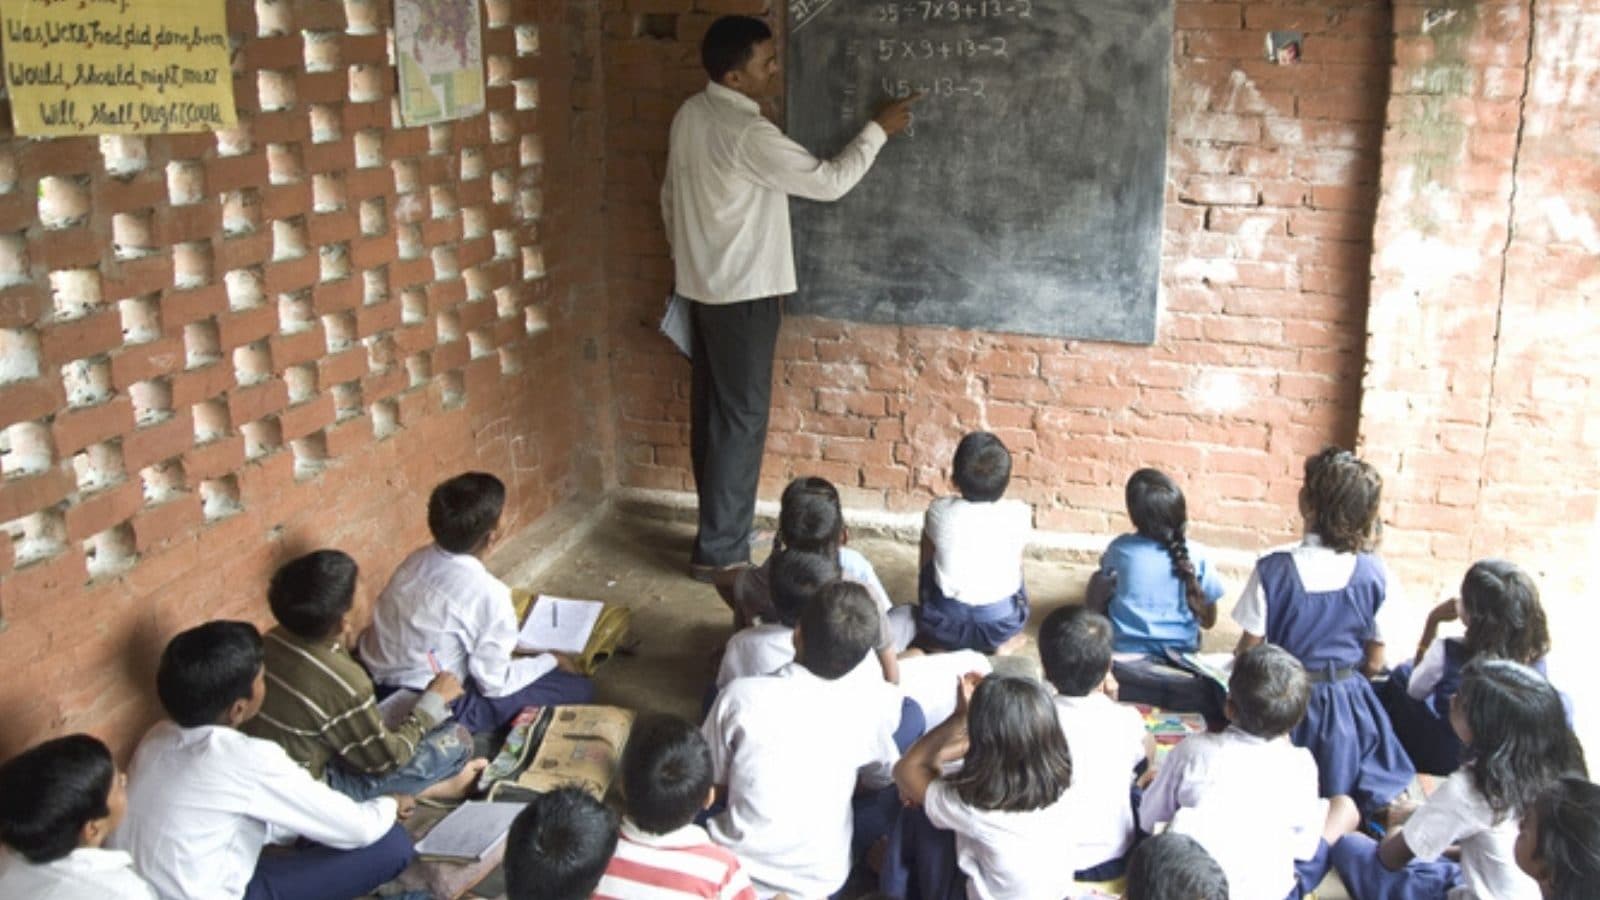 Was, Were, had, did, done, been
Would, Should, might, must
Will, Shall, Ought, Could
35÷7×9+13-2
= 5×9+13-2
= 45+13-2